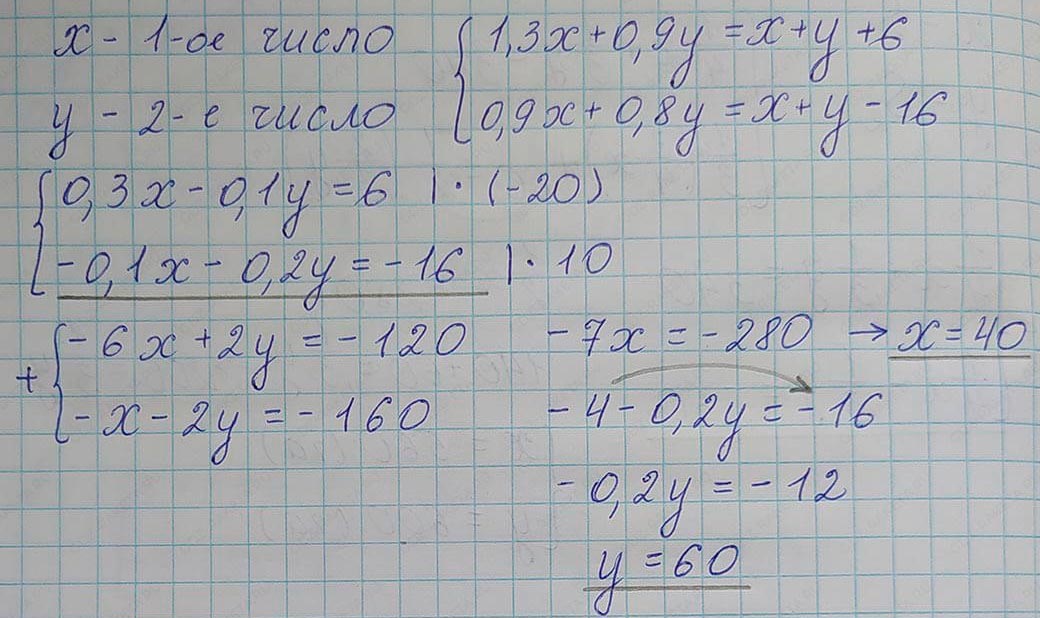 x - 1-ое число
y - 2-е число
1,3x+0,9y=x+y+6
0,9x+0,8y=x+y-16
0,3x-0,1y=6 |·(-20)
-0,1x-0,2y=-16 |·10
+
-6x+2y=-120
-x-2y=-160
-7x=-280 → x=40
-4-0,2y=-16
-0,2y=-12
y=60